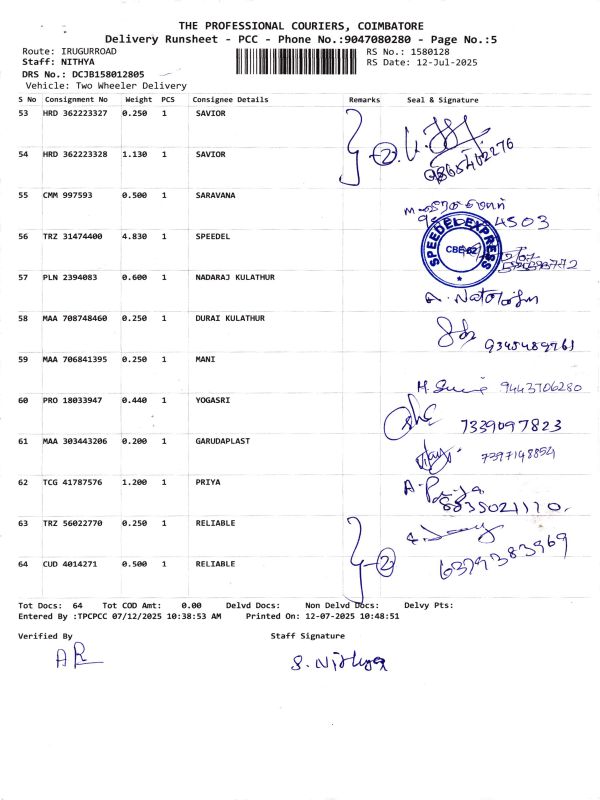 THE PROFESSIONAL COURIERS, COIMBATORE
Delivery Runsheet - PCC - Phone No.:9047080280 - Page No.:5
Route: IRUGURROAD RS No.: 1580128
Staff: NITHYA RS Date: 12-Jul-2025
DRS No.: DCJB158012805
Vehicle: Two Wheeler Delivery
S No Consignment No Weight PCS Consignee Details Remarks Seal & Signature
53 HRD 362223327 0.250 1 SAVIOR
2
54 HRD 362223328 1.130 1 SAVIOR
55 CMM 997593 0.500 1 SARAVANA
4503
56 TRZ 31474400 4.830 1 SPEEDEL
SPEEDEL EXPRESS
CBE-62
57 PLN 2394083 0.600 1 NADARAJ KULATHUR
58 MAA 708748460 0.250 1 DURAI KULATHUR
9345489761
59 MAA 706841395 0.250 1 MANI
9443706280
60 PRO 18033947 0.440 1 YOGASRI
7339097823
61 MAA 303443206 0.200 1 GARUDAPLAST
7397148854
62 TCG 41787576 1.200 1 PRIYA
A. Priya
8835021170.
63 TRZ 56022770 0.250 1 RELIABLE
2
64 CUD 4014271 0.500 1 RELIABLE
6379383969
Tot Docs: 64 Tot COD Amt: 0.00 Delvd Docs: Non Delvd Docs: Delvy Pts:
Entered By :TPCPCC 07/12/2025 10:38:53 AM Printed On: 12-07-2025 10:48:51
Verified By Staff Signature
AR S. Nithya